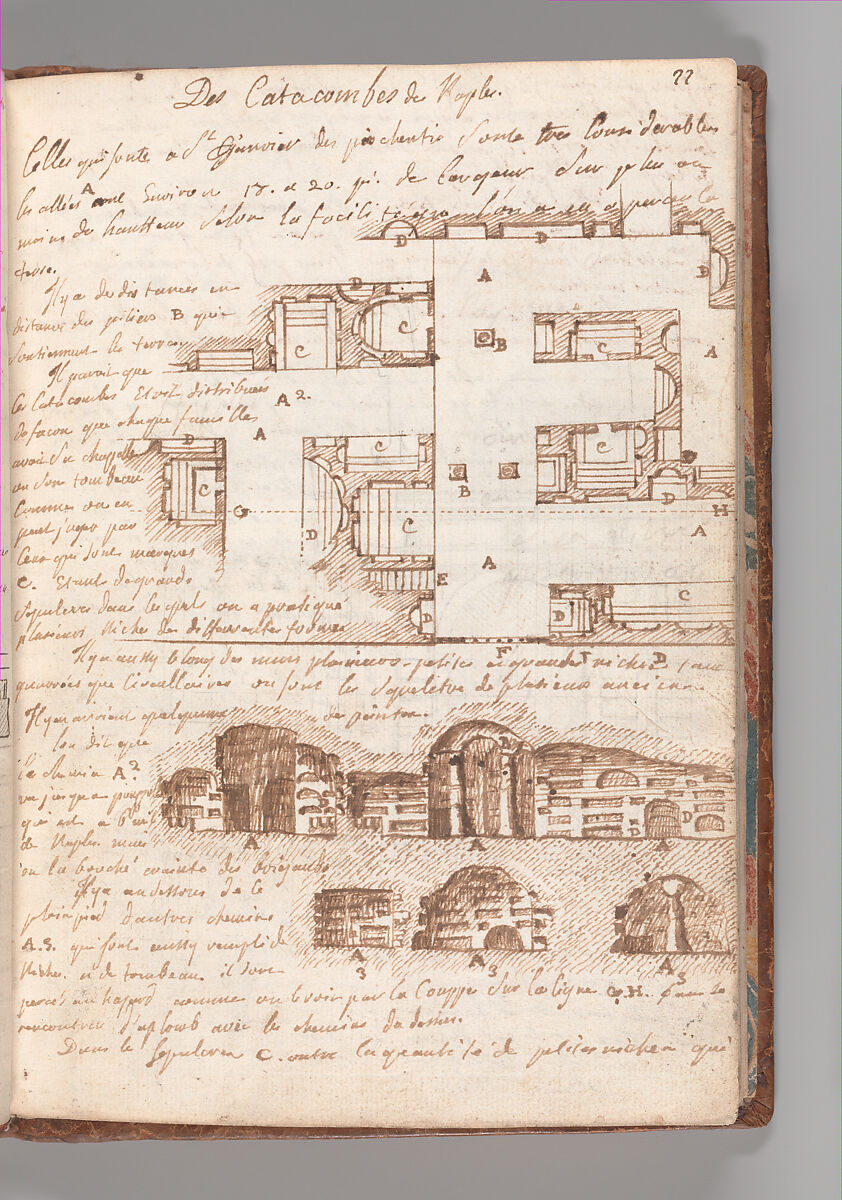 22
Des Catacombes de Naples.
Celles qui sont a St Janvier des sont tres Considerables
les allées A ont Environ 18. a 20. pi. de largeur Sur plus ou
moins de hautteur selon la facilité que l'on a eu a percer la
terre.
Il y a de distances en
distance des piliers B qui
soutiennent les terres
Il paroit que
les Catacombes Etoit distribuées
de facon que chaque familles
avoit Sa chappelle
ou son tombeau
Comme on en
peut juger par
Ceux qui sont marqués
C. Etant de grands
Sepulcres dans lesquels on a pratiqué
plusieurs Niches de differentes formes
Il y a aussy le long des murs plusieurs petites et grandes niches tant
quarrées que Circullaires ou sont les Squelette de plusieurs anciens
Il y en avoient quelqu'une de peintes.
l'on dit que
le chemin A2
va jusqu'a
qui est a
de Naples mais
on la bouché crainte des brigands
Il y a au dessous de ce
plain pied d'autres chemins
A.3. qui sont aussy rempli de
Niches et de tombeau. il sont
percés au hazard comme on le voit par la Couppe Sur la ligne G.H. Sans se
rencontrer d'aplomb avec les chemins du dessus.
Dans le Sepulcre C. outre la quantité de petites niches qui
D D
A
D
D
B
C
C
C
A
A 2.
A
D
C
C
C
B
D
G
H
D
C
A
A
E
C
D
D
F
D
D
D
D
A
A
A
A
3
A
3
A
3